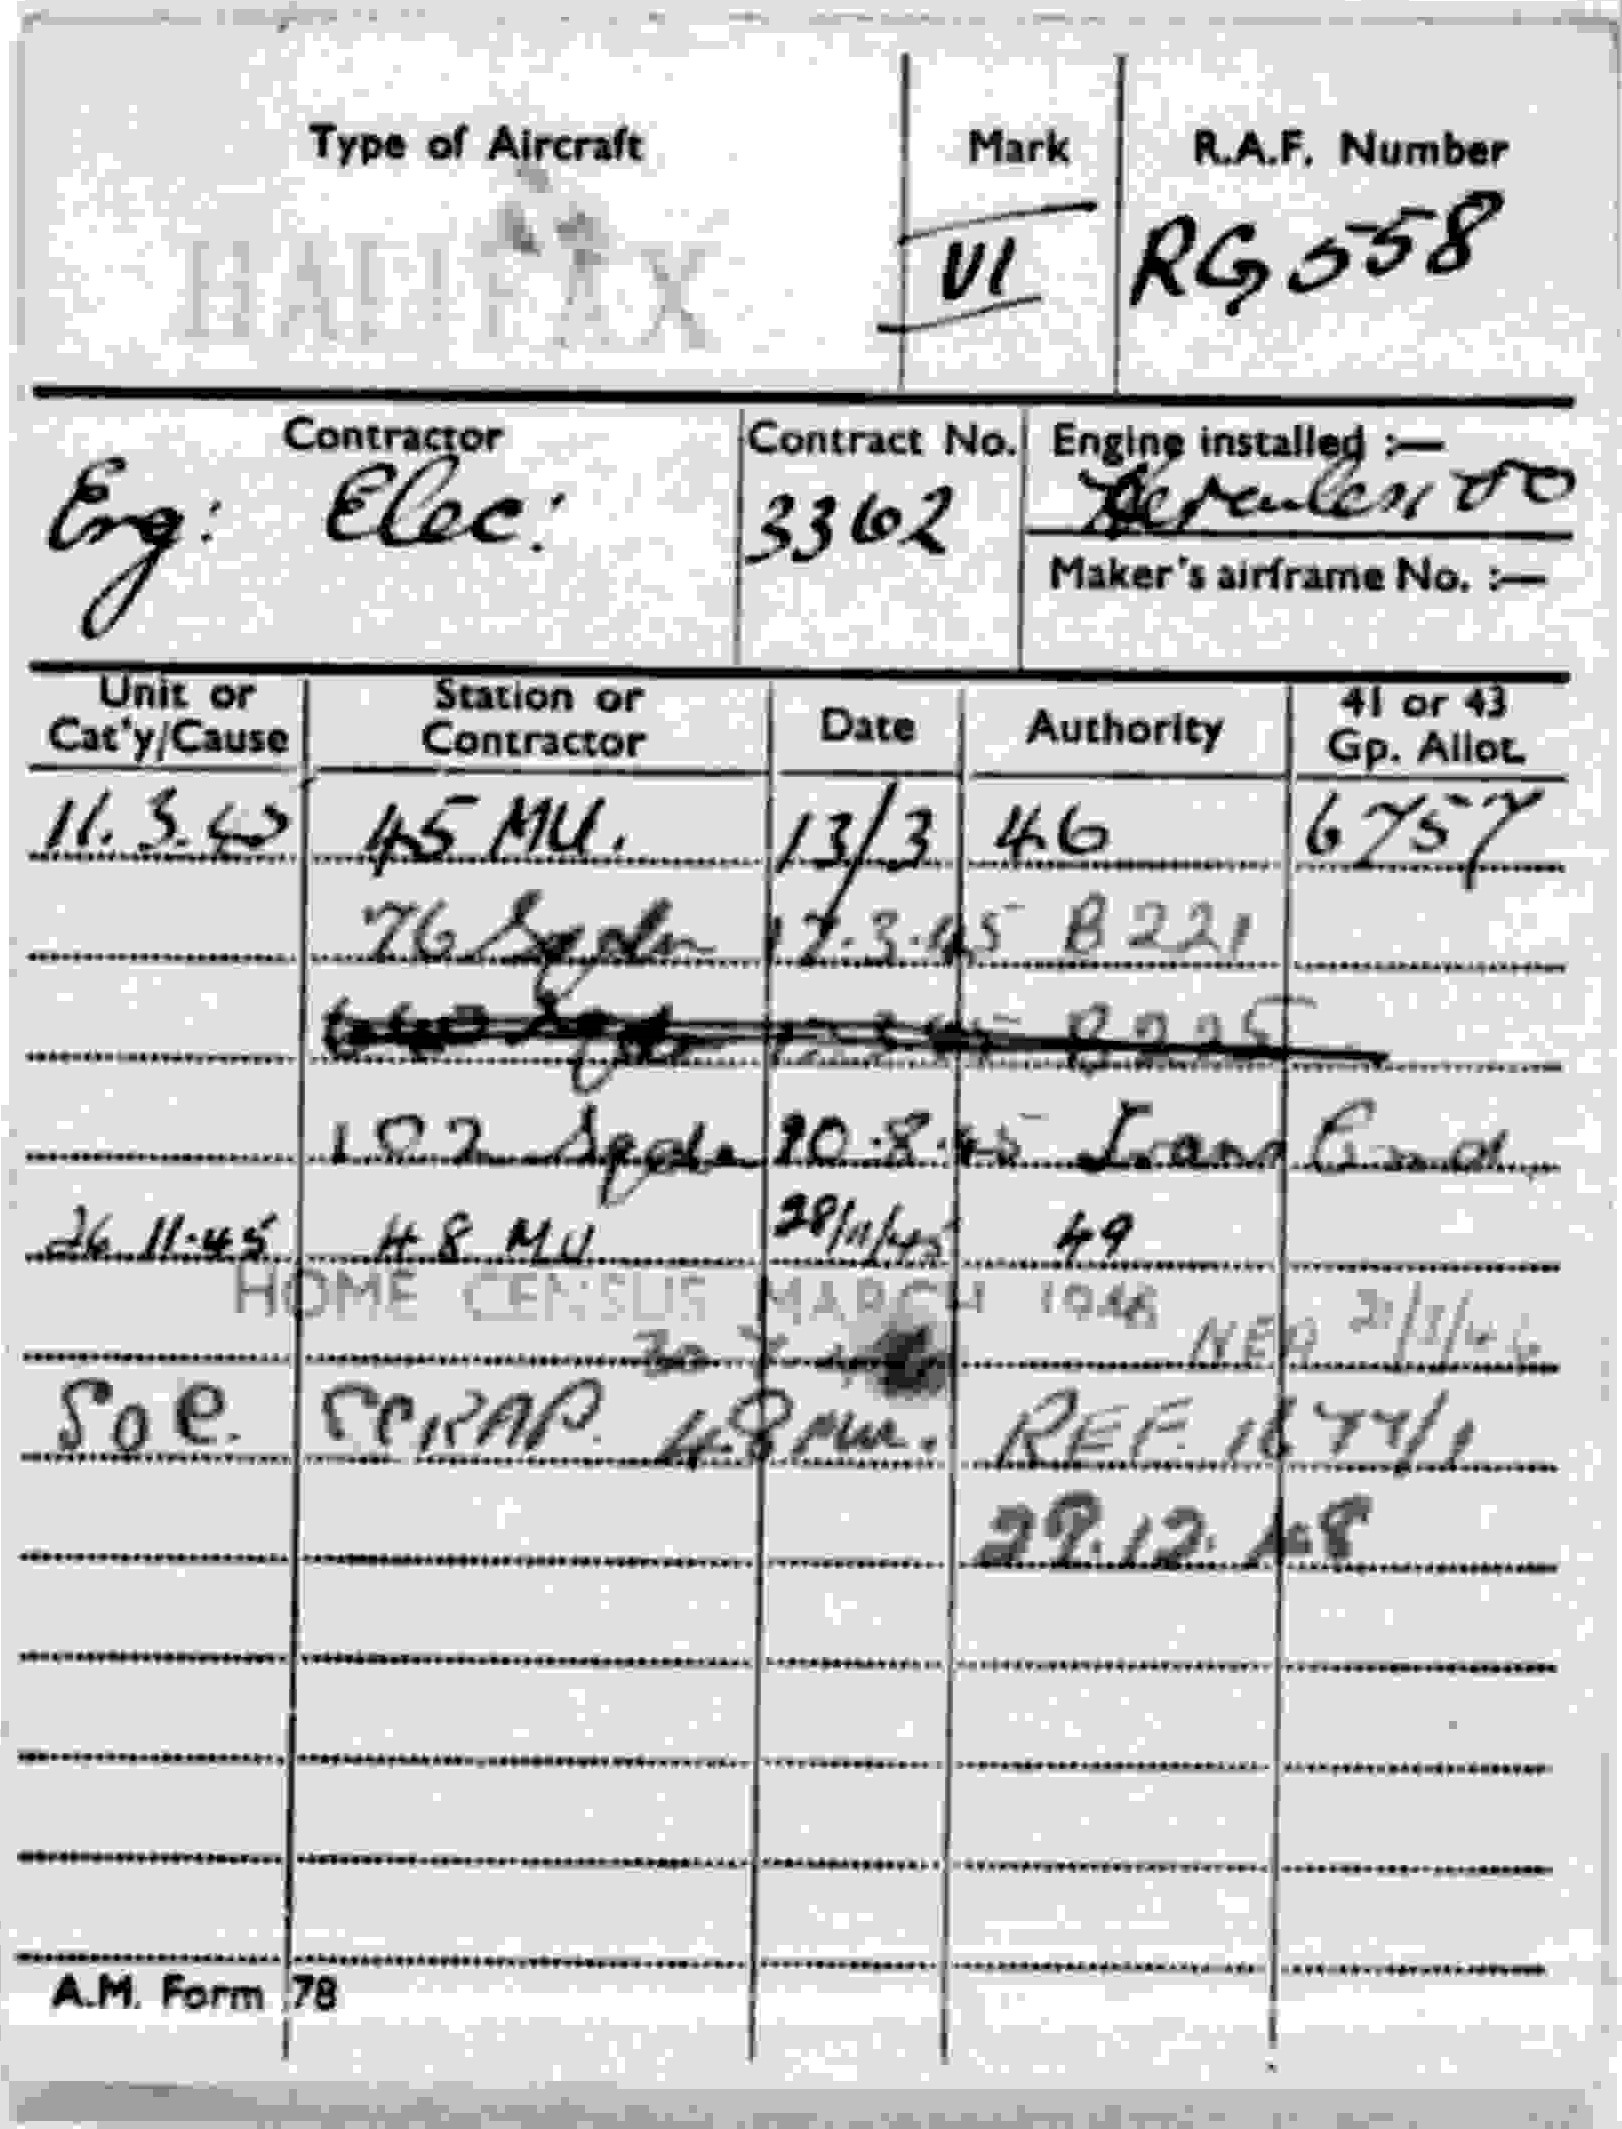 Type of Aircraft Mark R.A.F. Number
HALIFAX VI RG558
Contractor Contract No. Engine installed :—
Eng: Elec: 3362 Hercules 100
Maker's airframe No. :—
Unit or Cat'y/Cause Station or Contractor Date Authority 41 or 43 Gp. Allot.
11.3.45 45 MU. 13/3 46 6757
76 Sqdn 17.3.45 B 221
Sqdn 3 45 B 225
102 Sqdn 20.8.45 Trans Cmd
26 11.45 48 MU 28/11/45 49
HOME CENSUS MARCH 1946
NEA 21/3/46
SOC. SCRAP. 48 MU. REF. 1677/1
29.12.48
A.M. Form 78